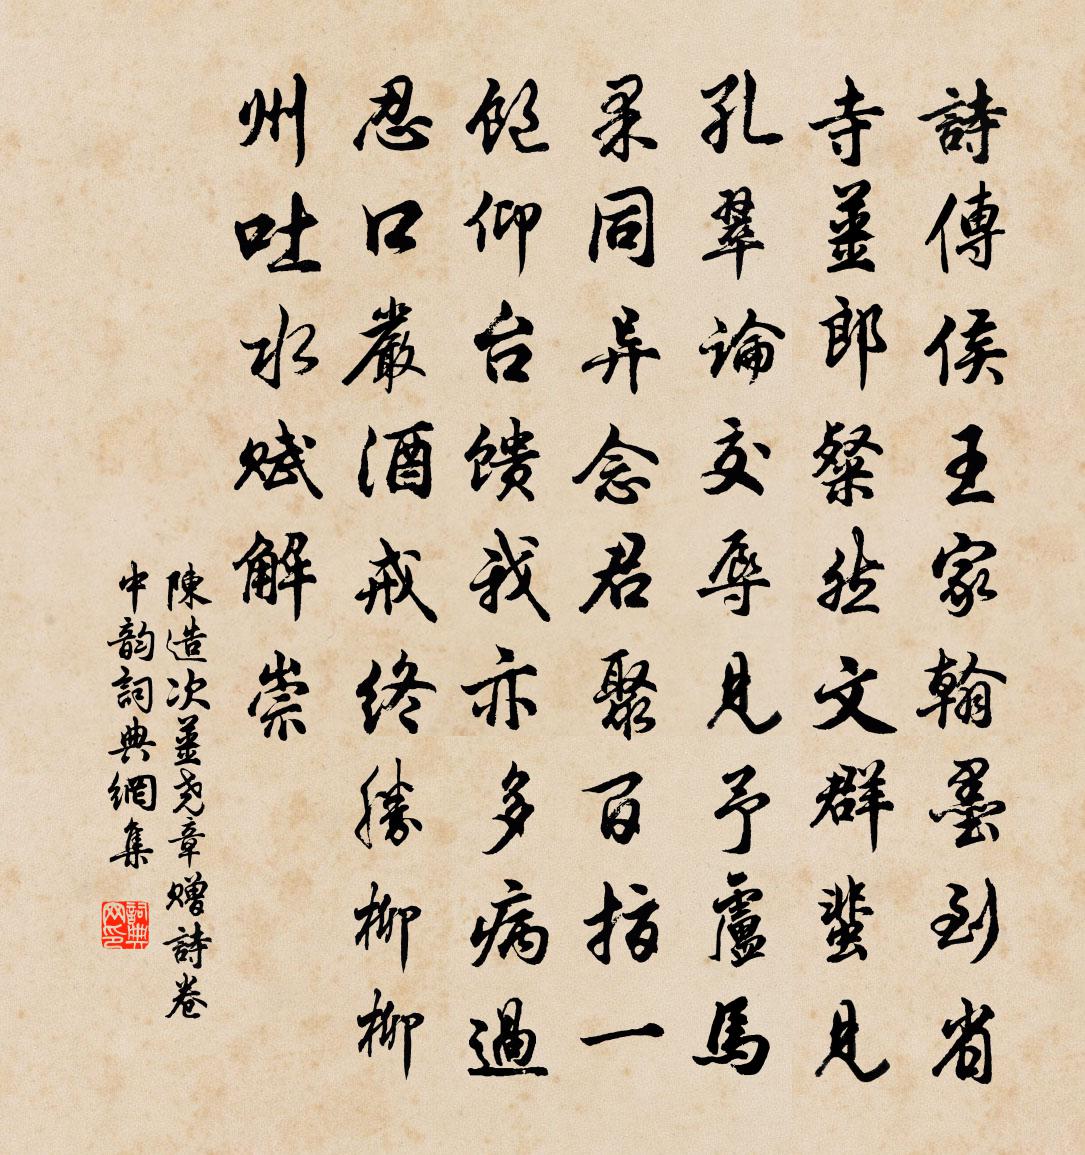 詩傳侯王家翰墨到省
寺薑郎粲然文群蜚見
孔翠論交辱見予盧馬
果同异念君聚百指一
飽仰台馈我亦多病過
忍口嚴酒戒終勝柳柳
州吐水賦解崇
陳造次薑堯章贈詩卷
中韵詞典網集
詞典网印